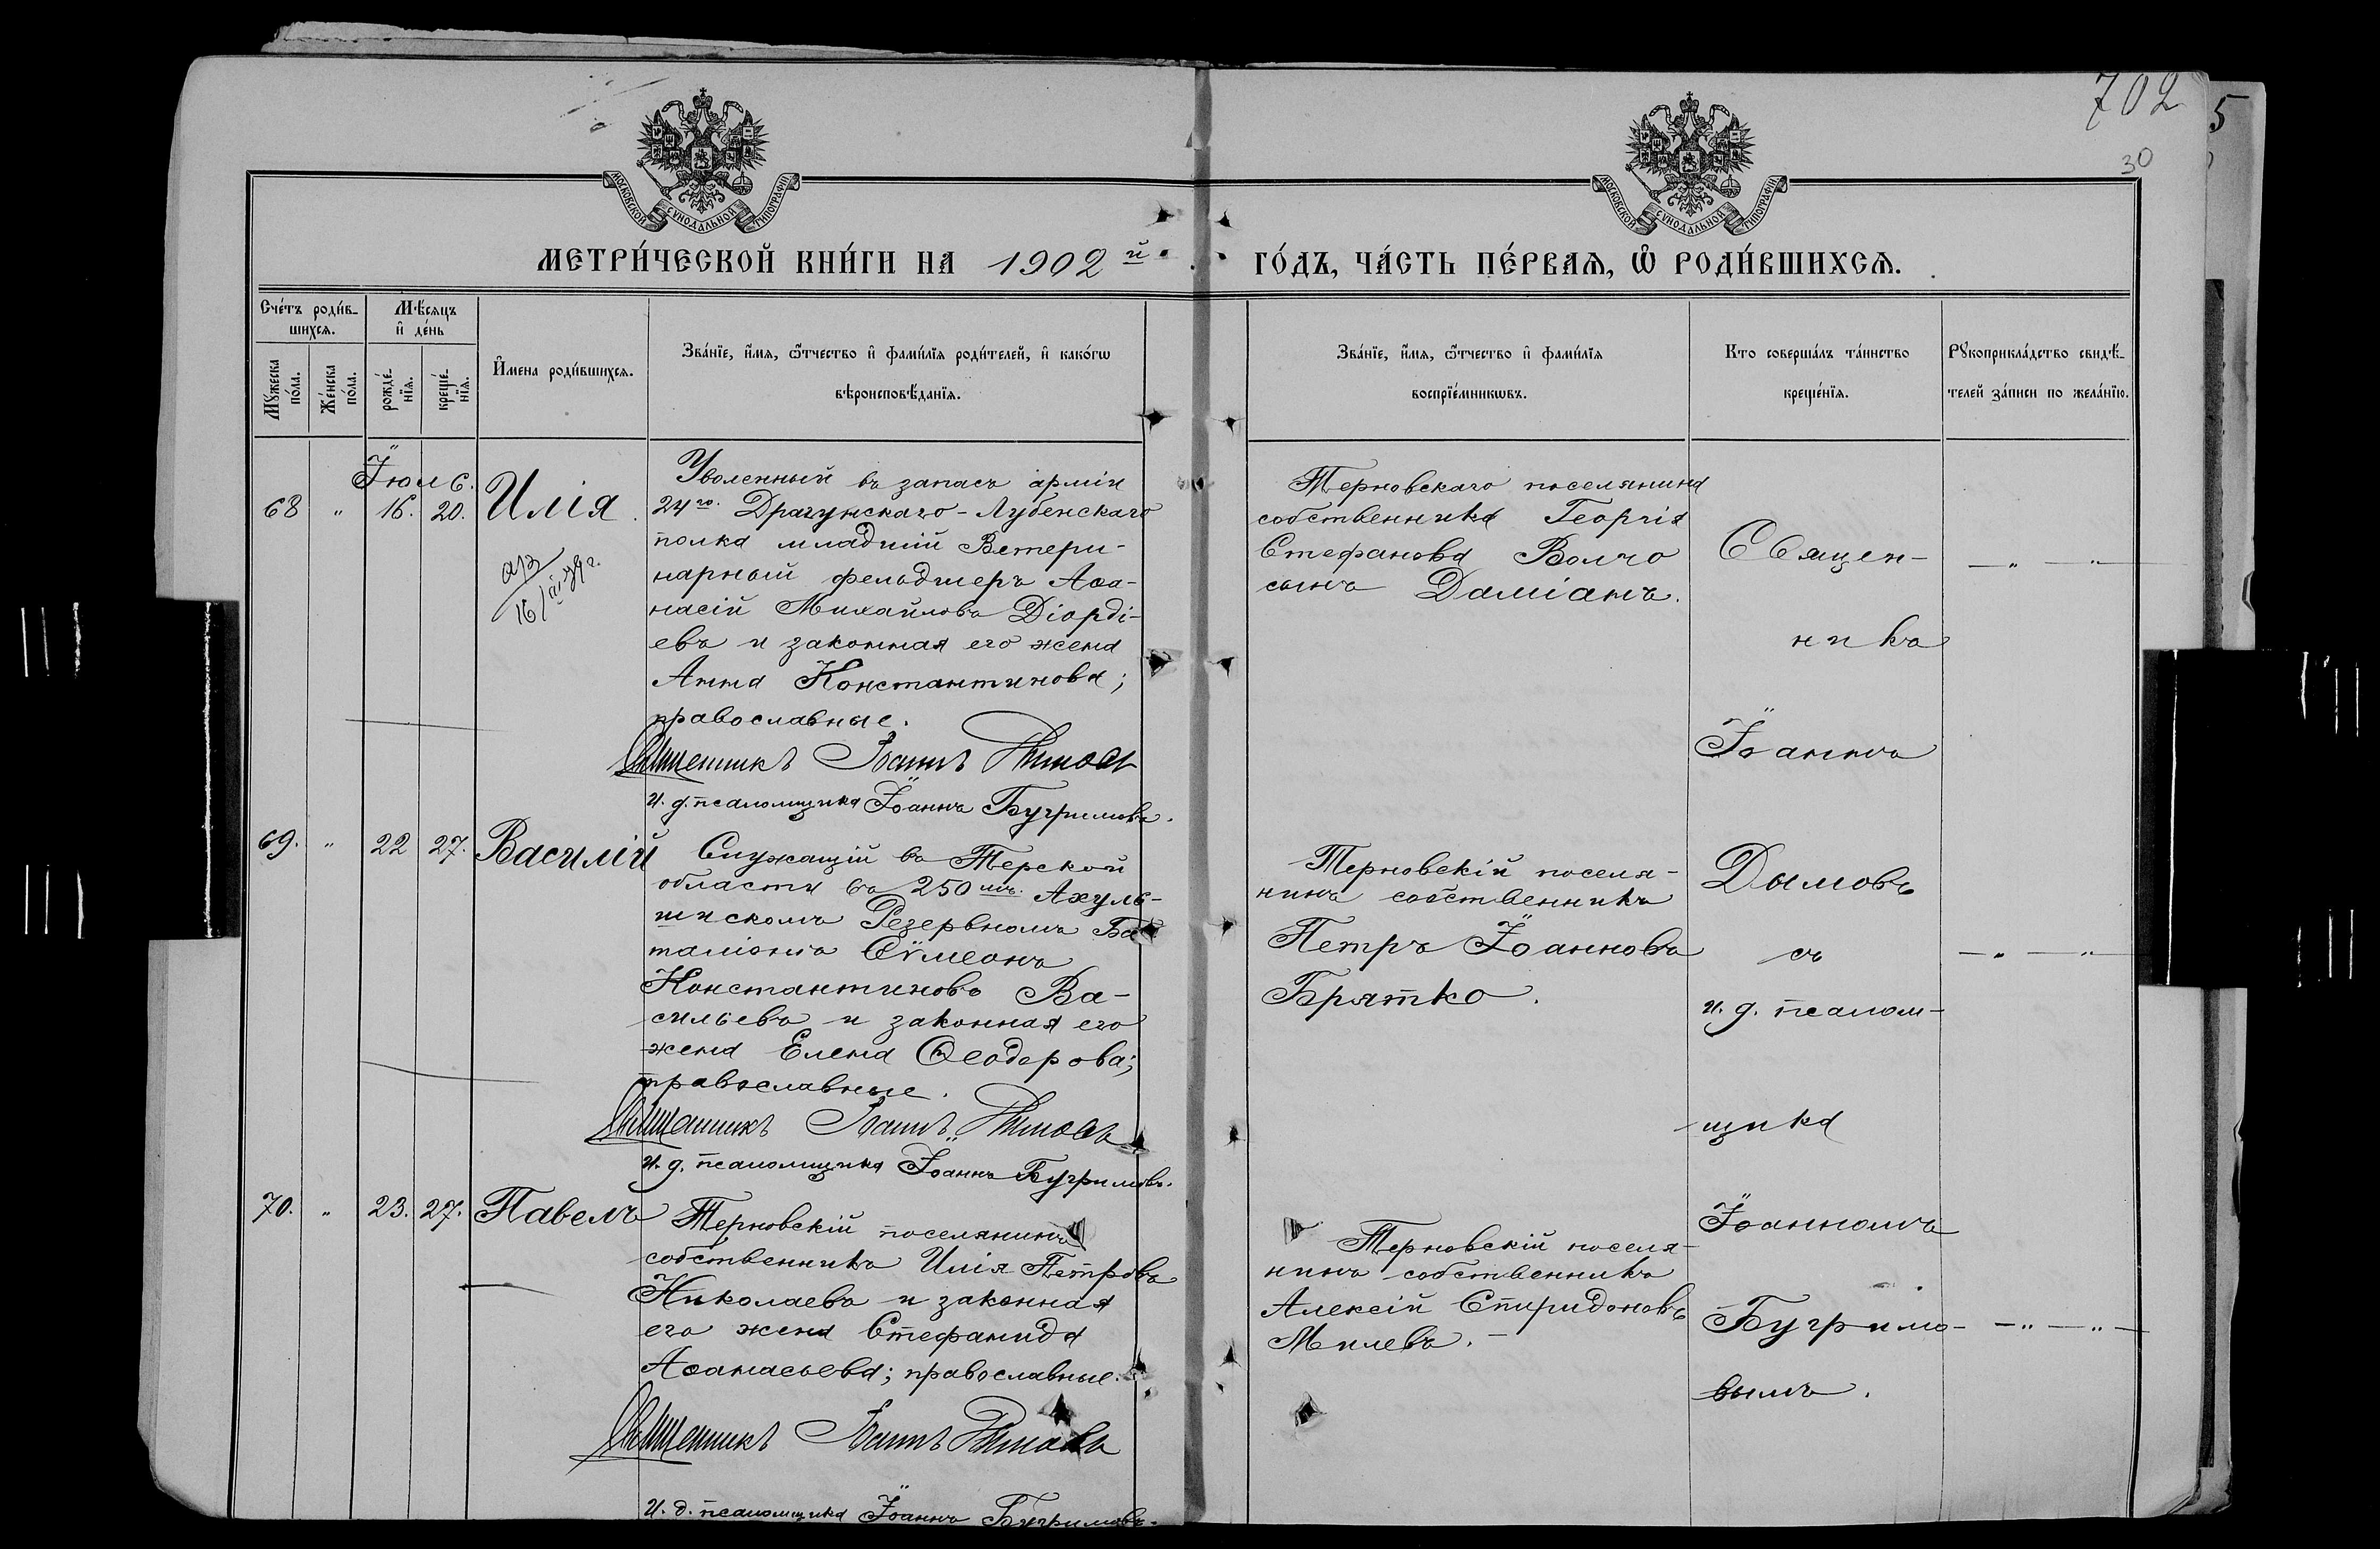 702
5
30
МОСКОВСКОЙ СѴНОДАЛЬНОЙ ТИПОГРАФІИ
МОСКОВСКОЙ СѴНОДАЛЬНОЙ ТИПОГРАФІИ
МЕТРИ́ЧЕСКОЙ КНИ́ГИ НА 1902 й
ГО́ДЪ, ЧА́СТЬ ПЕ́РВАѦ, Ѡ҆ РОДИ́ВШИХСѦ.
Сче́тъ роди́в-
шихсѧ.
Мꙋ́жеска по́ла.
Же́нска по́ла.
Мѣ́сѧцъ
и҆ де́нь
рожде́-нїѧ.
креще́-нїѧ.
И҆мена роди́вшихсѧ.
Зва́нїе, и҆́мѧ, ѻ҆́тчество и҆ фами́лїѧ роди́телей, и҆ како́гѡ
вѣроисповѣ́данїѧ.
Зва́нїе, и҆́мѧ, ѻ҆́тчество и҆ фами́лїѧ
воспрїе́мникѡвъ.
Кто соверша́лъ та́инство
креще́нїѧ.
Рꙋкоприкла́дство свидѣ́-
телей за́писи по жела́нїю.
Іюль.
68 " 16. 20. Илія.
Уволенный въ запасъ арміи
24го. Драгунскаго-Лубенскаго
полка младшій Ветери-
нарный фельдшеръ Аѳа-
насій Михайловъ Діорді-
евъ и законная его жена
Анна Константинова;
православные.
Священникъ Іоаннъ Дымовъ
и. д. псаломщика Іоаннъ Бугримовъ.
Терновскаго поселянина
собственника Георгія
Стефанова Волчо
сынъ Даміанъ.
Священ-
никъ
Іоаннъ
Дымовъ
съ
и. д. псалом-
щика
Іоанномъ
Бугримо-
вымъ.
— " — "
69. " 22 27. Василій
Служащій въ Терской
области въ 250мъ. Ахуль-
шискомъ Резервномъ Ба-
таліонѣ Сѵмеонъ
Константиновъ Ва-
сильевъ и законная его
жена Елена Ѳеодорова;
православные.
Священникъ Іоаннъ Дымовъ
и. д. псаломщика Іоаннъ Бугримовъ.
Терновскій поселя-
нинъ собственникъ
Петръ Іоанновъ
Брятко.
— " — "
70. " 23. 27. Павелъ
Терновскій поселянинъ
собственникъ Илія Петровъ
Николаевъ и законная
его жена Стефанида
Аѳанасьева; православные.
Священникъ Іоаннъ Дымовъ
и. д. псаломщика Іоаннъ Бугримовъ.
Терновскій поселя-
нинъ собственникъ
Алексій Спиридоновъ
Милевъ. —
— " — " —